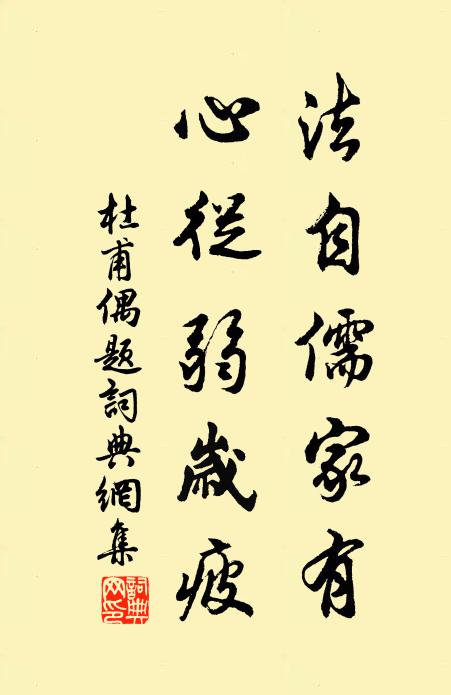 法自儒家有
心從弱歲疲
杜甫偶題詞典網集
詞典網印